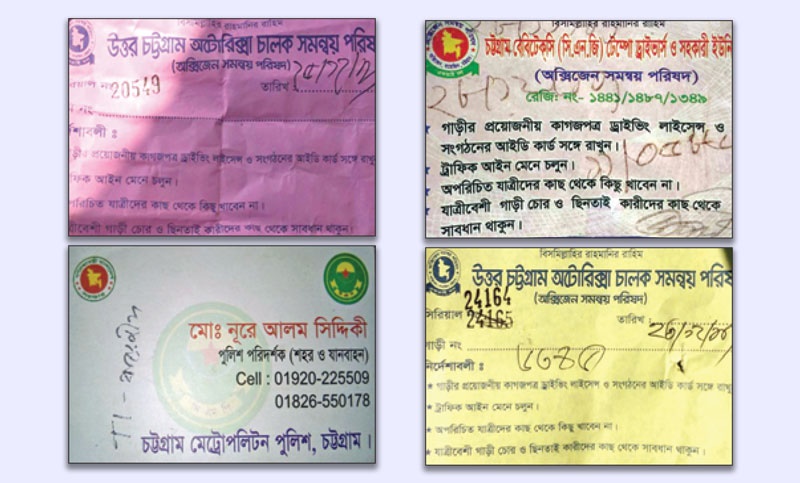 বিসমিল্লাহির রাহমানির রাহিম
উত্তর চট্টগ্রাম অটোরিক্সা চালক সমন্বয় পরিষ
(অক্সিজেন সমন্বয় পরিষদ)
রিয়াল নং 20549
তারিখ
নং
র্দেশাবলী ঃ
গাড়ীর প্রয়োজনীয় কাগজপত্র ড্রাইভিং লাইসেন্স ও সংগঠনের আইডি কার্ড সঙ্গে রাখু
ফিক আইন মেনে চলুন।
পরিচিত যাত্রীদের কাছ থেকে কিছু খাবেন না।
ত্রীবেশী গাড়ী চোর ও ছিনতাই কারীদের কাছ থেকে সাবধান থাকুন।
বিসমিল্লাহির রাহমানির রাহিম
চট্টগ্রাম বেবিটেক্সি (সি.এন.জি) টেম্পো ড্রাইভার্স ও সহকারী ইউনি
(অক্সিজেন সমন্বয় পরিষদ)
রেজি: নং- ১৪৪১/১৪৮৭/১৩৪৯
গাড়ীর প্রয়োজনীয় কাগজপত্র ড্রাইভিং লাইসেন্স ও
সংগঠনের আইডি কার্ড সঙ্গে রাখুন।
ট্রাফিক আইন মেনে চলুন।
অপরিচিত যাত্রীদের কাছ থেকে কিছু খাবেন না।
যাত্রীবেশী গাড়ী চোর ও ছিনতাই কারীদের কাছ থেকে
সাবধান থাকুন।
মোঃ নূরে আলম সিদ্দিকী
পুলিশ পরিদর্শক (শহর ও যানবাহন)
Cell : 01920-225509
01826-550178
চট্টগ্রাম মেট্রোপলিটন পুলিশ, চট্টগ্রাম।
TI -
বিসমিল্লাহির রাহমানির রাহিম
উত্তর চট্টগ্রাম অটোরিক্সা চালক সমন্বয় পরিষ
(অক্সিজেন সমন্বয় পরিষদ)
24164
সিরিয়াল নং 24165
তারিখ
গাড়ী নং
নির্দেশাবলী ঃ
* গাড়ীর প্রয়োজনীয় কাগজপত্র ড্রাইভিং লাইসেন্স ও সংগঠনের আইডি কার্ড সঙ্গে রাখু
* ট্রাফিক আইন মেনে চলুন।
* অপরিচিত যাত্রীদের কাছ থেকে কিছু খাবেন না।
* যাত্রীবেশী গাড়ী চোর ও ছিনতাই কারীদের কাছ থেকে সাবধান থাকুন।